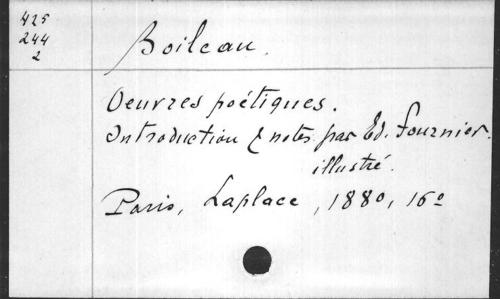 425
244
2
Boileau.
Oeuvres poétiques.
Introduction & notes par Ed. Fournier.
illustré.
Paris, Laplace, 1880, 16º